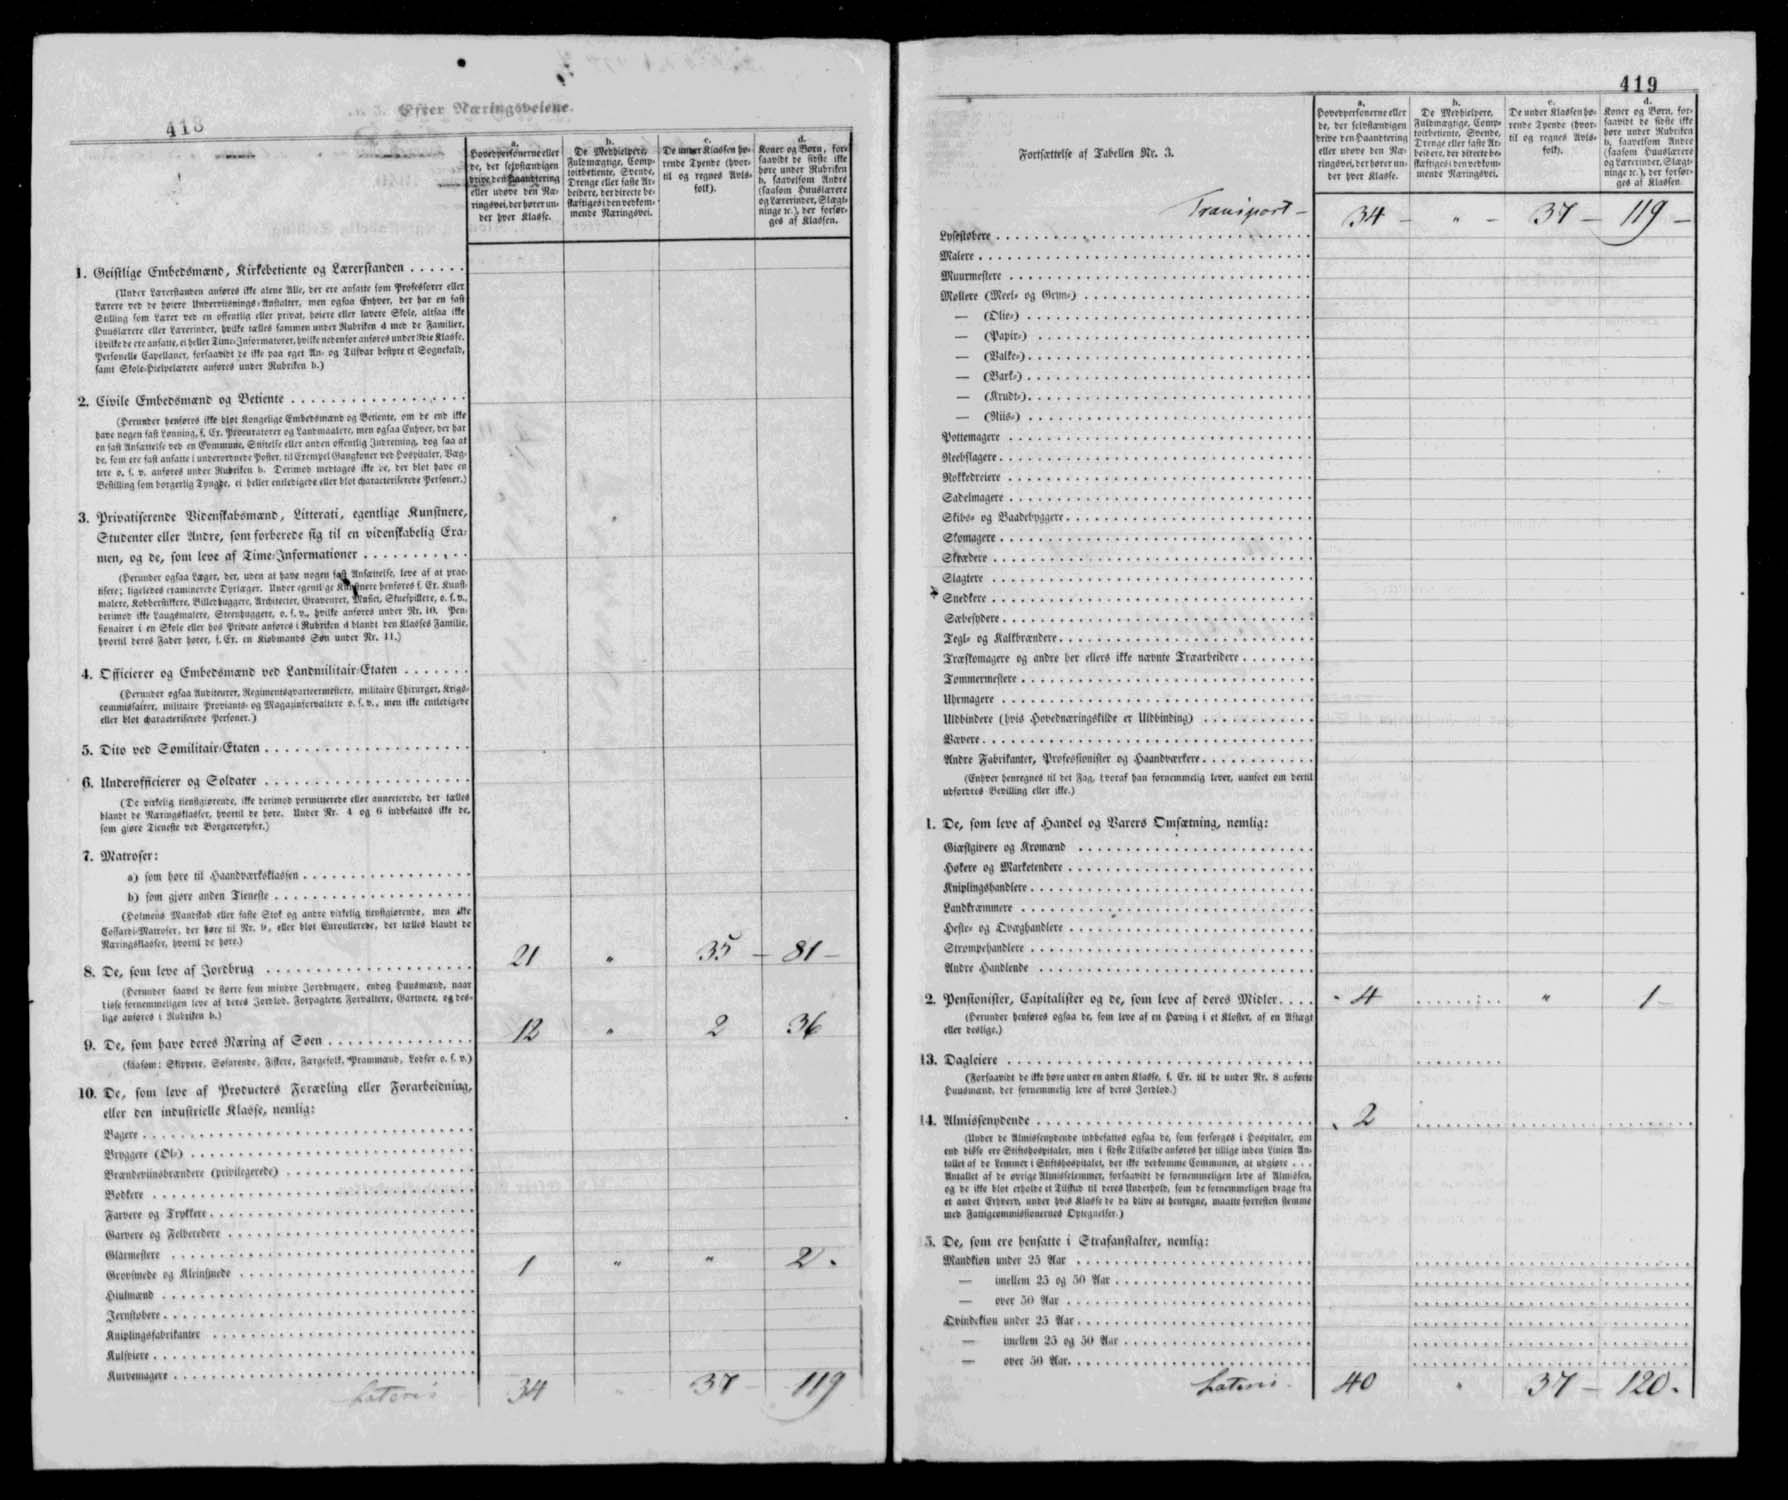 418
Efter Næringsveiene.
a.
Hovedpersonerne eller
de, der selvstændigen
drive den Haandtering
eller udøve den Næ-
ringsvei, der hører un-
der hver Klasse.
b.
De Medhielpere,
Fuldmægtige, Comp-
toirbetiente, Svende,
Drenge eller faste Ar-
beidere, der directe be-
skæftiges i den vedkom-
mende Næringsvei.
c.
De under Klassen hø-
rende Tyende (hvor-
til og regnes Avls-
folk).
d.
Koner og Børn, for-
saavidt de sidste ikke
høre under Rubriken
b, saavelsom Andre
(saasom Huuslærere
og Lærerinder, Slægt-
ninge ꝛc.), der forsør-
ges af Klassen.
1. Geistlige Embedsmænd, Kirkebetiente og Lærerstanden
(Under Lærerstanden anføres ikke alene Alle, der ere ansatte som Professorer eller
Lærere ved de høiere Underviisnings-Anstalter, men ogsaa Enhver, der har en fast
Stilling som Lærer ved en offentlig eller privat, høiere eller lavere Skole, altsaa ikke
Huuslærere eller Lærerinder, hvilke tælles sammen under Rubriken d med de Familier,
i hvilke de ere ansatte, ei heller Time-Informatorer, hvilke nedenfor anføres under 3die Klasse.
Personelle Capellaner, forsaavidt de ikke paa eget An- og Tilsvar bestyre et Sognekald,
samt Skole-Hielpelærere anføres under Rubriken b.)
2. Civile Embedsmænd og Betiente
(Herunder henføres ikke blot Kongelige Embedsmænd og Betiente, om de end ikke
have nogen fast Lønning, f. Ex. Procuratorer og Landmaalere, men ogsaa Enhver, der har
en fast Ansættelse ved en Commune, Stiftelse eller anden offentlig Indretning, dog saa at
de, som ere fast ansatte i underordnede Poster, til Exempel Gangkoner ved Hospitaler, Væg-
tere o. s. v. anføres under Rubriken b. Derimod medtages ikke de, der blot have en
Bestilling som borgerlig Tyngde, ei heller entledigede eller blot characteriserede Personer.)
3. Privatiserende Videnskabsmænd, Litterati, egentlige Kunstnere,
Studenter eller Andre, som forberede sig til en videnskabelig Exa-
men, og de, som leve af Time-Informationer
(Herunder ogsaa Læger, der, uden at have nogen fast Ansættelse, leve af at prac-
tisere; ligeledes examinerede Dyrlæger. Under egentlige Kunstnere henføres f. Ex. Kunst-
malere, Kobberstikkere, Billedhuggere, Architecter, Graveurer, Musici, Skuespillere, o. s. v.,
derimod ikke Laugsmalere, Steenhuggere, o. s. v., hvilke anføres under Nr. 10. Pen-
sionairer i en Skole eller hos Private anføres i Rubriken d blandt den Klasses Familie,
hvortil deres Fader hører, f. Ex. en Kiøbmands Søn under Nr. 11.)
4. Officierer og Embedsmænd ved Landmilitair-Etaten
(Herunder ogsaa Auditeurer, Regimentsqvarteermestere, militaire Chirurger, Krigs-
commissairer, militaire Proviants- og Magazinforvaltere o. s. v., men ikke entledigede
eller blot characteriserede Personer.)
5. Dito ved Sømilitair-Etaten
6. Underofficierer og Soldater
(De virkelig tienstgiørende, ikke derimod permitterede eller annecterede, der tælles
blandt de Næringsklasser, hvortil de høre. Under Nr. 4 og 6 indbefattes ikke de,
som giøre Tieneste ved Borgercorpser.)
7. Matroser:
a) som høre til Haandværksklassen
b) som giøre anden Tieneste
(Holmens Mandskab eller faste Stok og andre virkelig tienstgiørende, men ikke
Coffardi-Matroser, der høre til Nr. 9, eller blot Enroullerede, der tælles blandt de
Næringsklasser, hvortil de høre.)
8. De, som leve af Jordbrug 21 " 35 – 81 –
(Herunder saavel de større som mindre Jordbrugere, endog Huusmænd, naar
disse fornemmeligen leve af deres Jordlod. Forpagtere, Forvaltere, Gartnere, og des-
lige anføres i Rubriken b.)
9. De, som have deres Næring af Søen 12 " 2 36
(saasom: Skippere, Søfarende, Fiskere, Færgefolk, Prammænd, Lodser o. s. v.)
10. De, som leve af Producters Forædling eller Forarbeidning,
eller den industrielle Klasse, nemlig:
Bagere
Bryggere (Øl-)
Brændeviinsbrændere (privilegerede)
Bødkere
Farvere og Trykkere
Garvere og Felberedere
Glarmestere
Grovsmede og Kleinsmede 1 " " 2.
Hiulmænd
Jernstøbere
Kniplingsfabrikanter
Kulsviere
Kurvemagere
Lateris 34 " 37 – 119
419
Fortsættelse af Tabellen Nr. 3.
a.
Hovedpersonerne eller
de, der selvstændigen
drive den Haandtering
eller udøve den Næ-
ringsvei, der hører un-
der hver Klasse.
b.
De Medhielpere,
Fuldmægtige, Comp-
toirbetiente, Svende,
Drenge eller faste Ar-
beidere, der directe be-
skæftiges i den vedkom-
mende Næringsvei.
c.
De under Klassen hø-
rende Tyende (hvor-
til og regnes Avls-
folk).
d.
Koner og Børn, for-
saavidt de sidste ikke
høre under Rubriken
b, saavelsom Andre
(saasom Huuslærere
og Lærerinder, Slægt-
ninge ꝛc.), der forsør-
ges af Klassen.
Transport – 34 – " – 37 – 119 –
Lysestøbere
Malere
Muurmestere
Møllere (Meel- og Gryn-)
— (Olie-)
— (Papir-)
— (Valke-)
— (Bark-)
— (Krudt-)
— (Riis-)
Pottemagere
Reebslagere
Rokkedreiere
Sadelmagere
Skibs- og Baadebyggere
Skomagere
Skrædere
Slagtere
Snedkere
Sæbesydere
Tegl- og Kalkbrændere
Træskomagere og andre her ellers ikke nævnte Træarbeidere
Tømmermestere
Uhrmagere
Uldbindere (hvis Hovednæringskilde er Uldbinding)
Vævere
Andre Fabrikanter, Professionister og Haandværkere
(Enhver henregnes til det Fag, hvoraf han fornemmelig lever, uanseet om dertil
udfordres Bevilling eller ikke.)
1. De, som leve af Handel og Varers Omsætning, nemlig:
Giæstgivere og Kromænd
Høkere og Marketendere
Kniplingshandlere
Landkræmmere
Heste- og Qvæghandlere
Strømpehandlere
Andre Handlende
2. Pensionister, Capitalister og de, som leve af deres Midler 4 " 1 –
(Herunder henføres ogsaa de, som leve af en Hæving i et Kloster, af en Aftægt
eller deslige.)
13. Dagleiere
(Forsaavidt de ikke høre under en anden Klasse, f. Ex. til de under Nr. 8 anførte
Huusmænd, der fornemmelig leve af deres Jordlod.)
14. Almissenydende 2
(Under de Almissenydende indbefattes ogsaa de, som forsørges i Hospitaler, om
end disse ere Stiftshospitaler, men i sidste Tilfælde anføres her tillige inden Linien An-
tallet af de Lemmer i Stiftshospitalet, der ikke vedkomme Communen, at udgiøre . . .
Antallet af de øvrige Almisselemmer, forsaavidt de fornemmeligen leve af Almissen,
og de ikke blot erholde et Tilskud til deres Underhold, som de fornemmeligen drage fra
et andet Erhverv, under hvis Klasse de da blive at henregne, maatte forresten stemme
med Fattigcommissionernes Optegnelser.)
5. De, som ere hensatte i Strafanstalter, nemlig:
Mandkiøn under 25 Aar
— imellem 25 og 50 Aar
— over 50 Aar
Qvindekiøn under 25 Aar
— imellem 25 og 50 Aar
— over 50 Aar
Lateris 40 " 37 – 120.